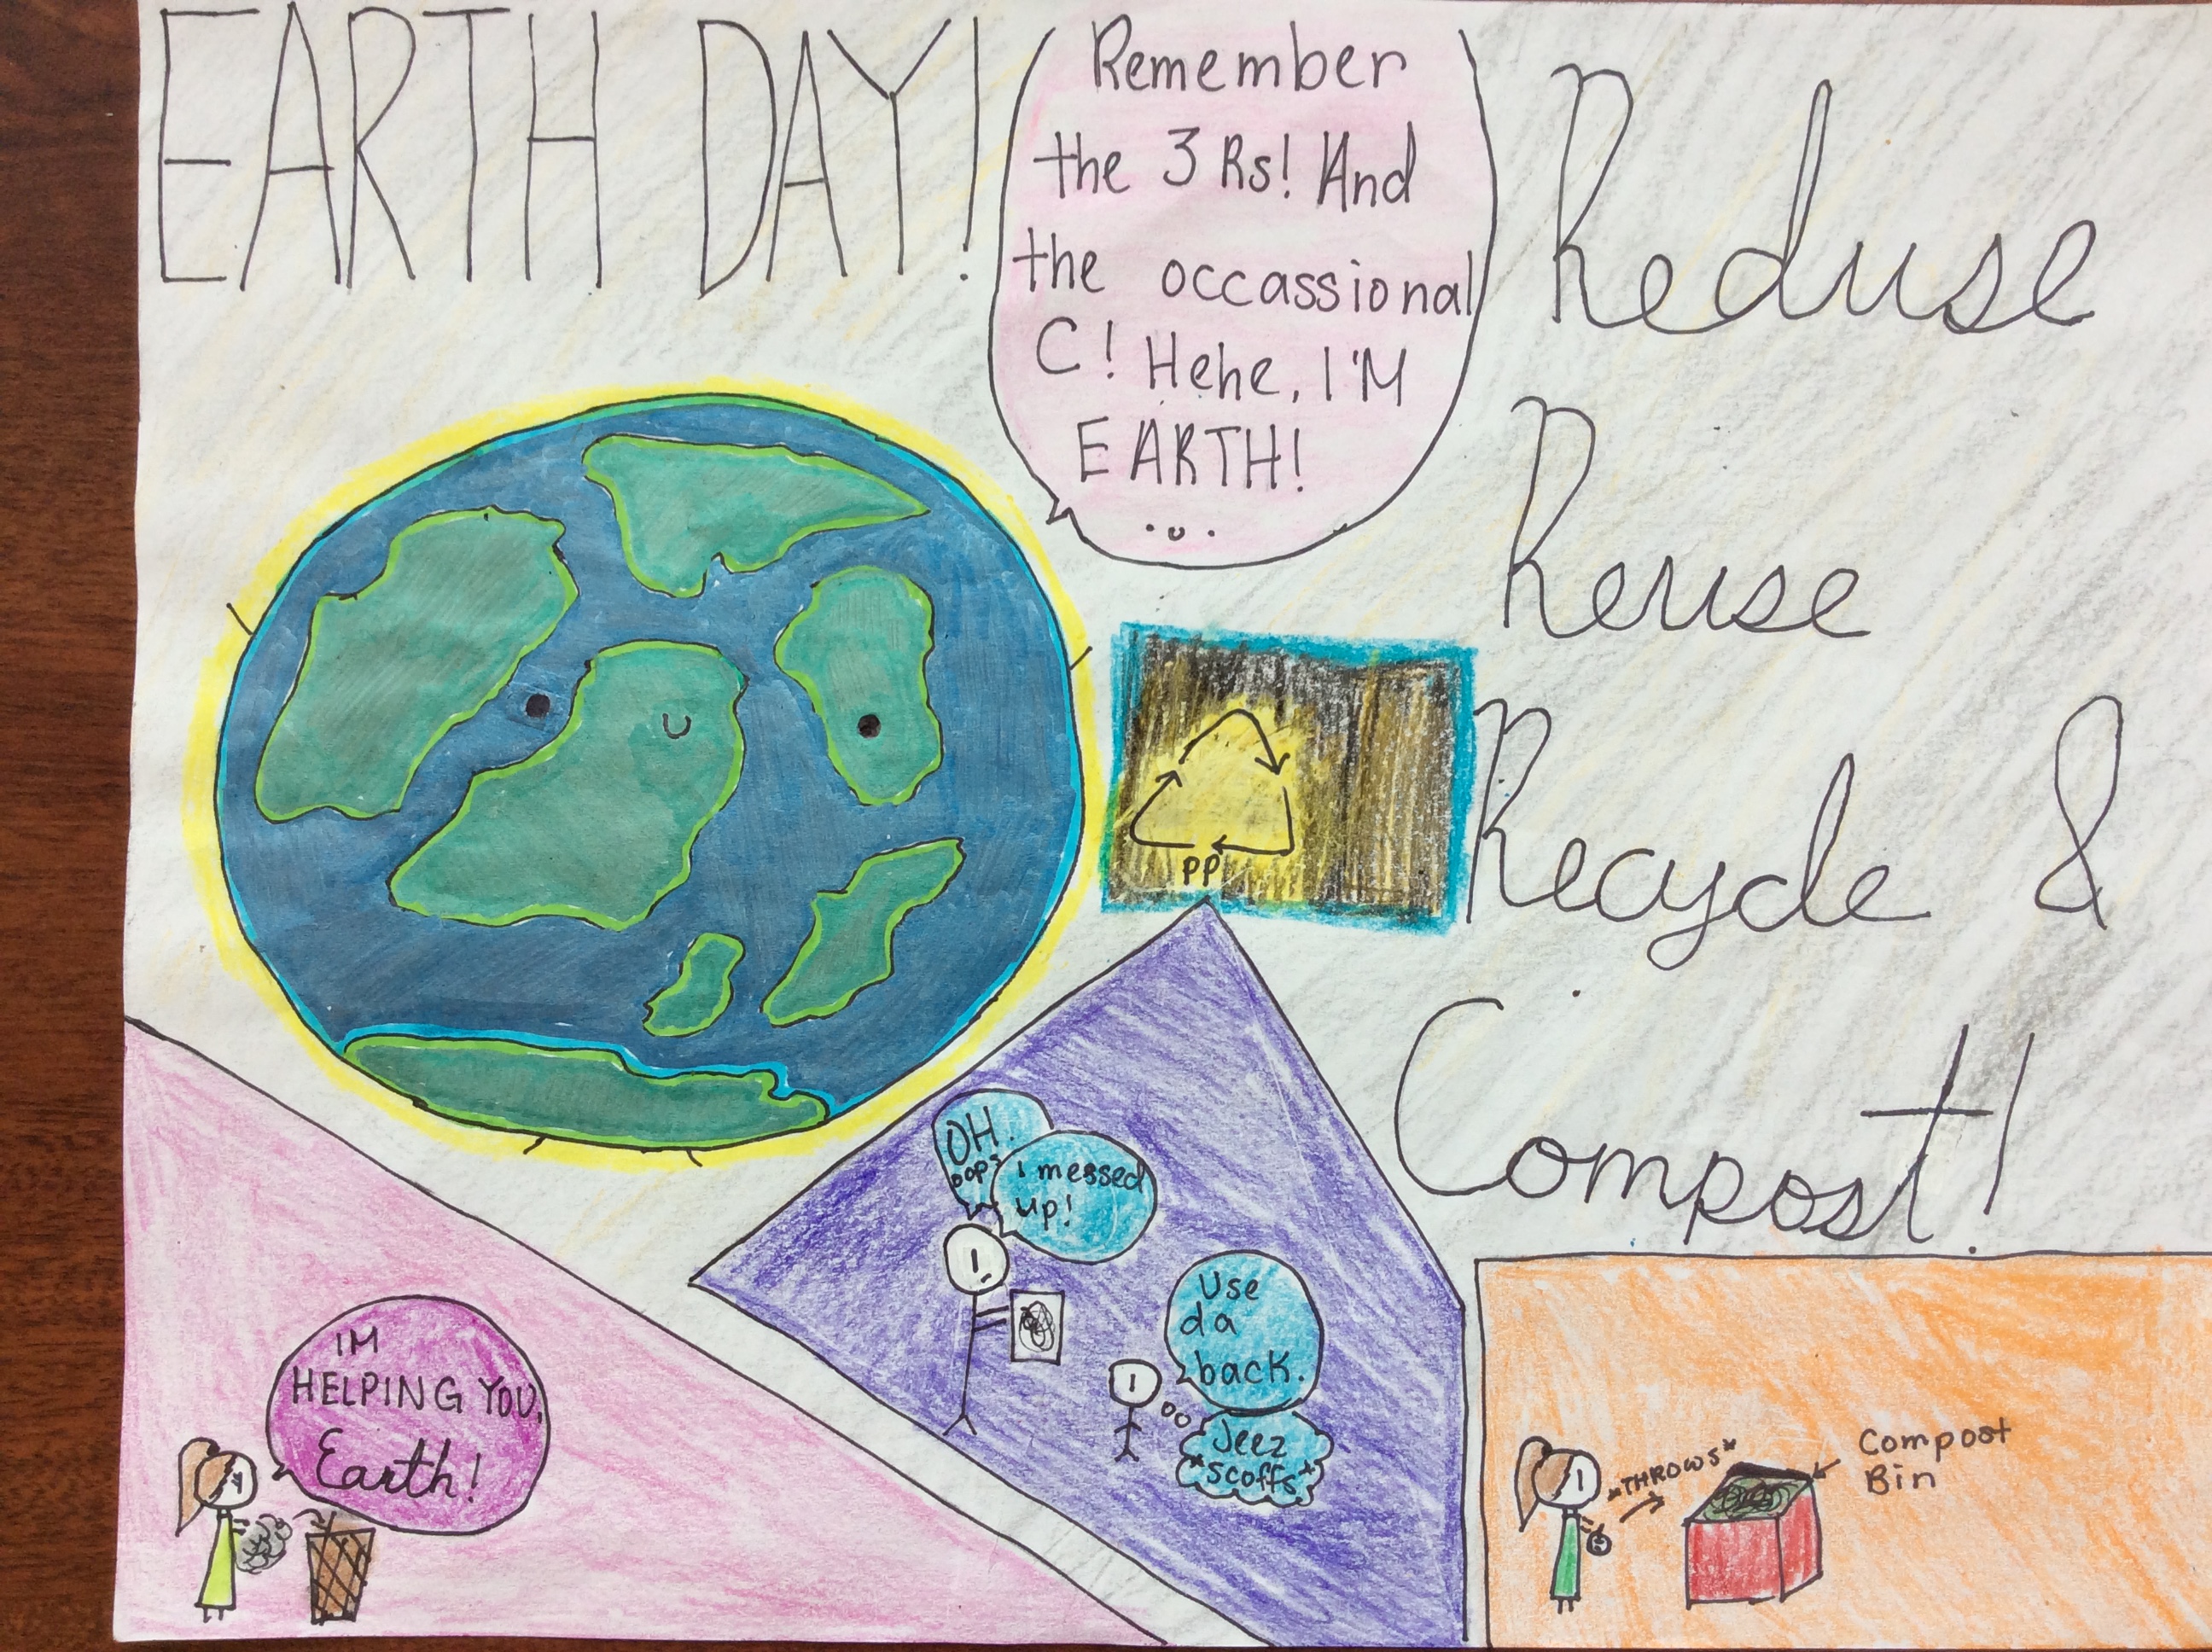 EARTH DAY!
Remember
the 3 Rs! And
the occassional
C! Hehe, I'M
EARTH!
Reduse
Reuse
Recycle &
Compost!
PP
OH!
oops
i messed
up!
Use
da
back.
Jeez
*scoffs*
IM
HELPING YOU,
Earth!
*THROWS*
Compost
Bin